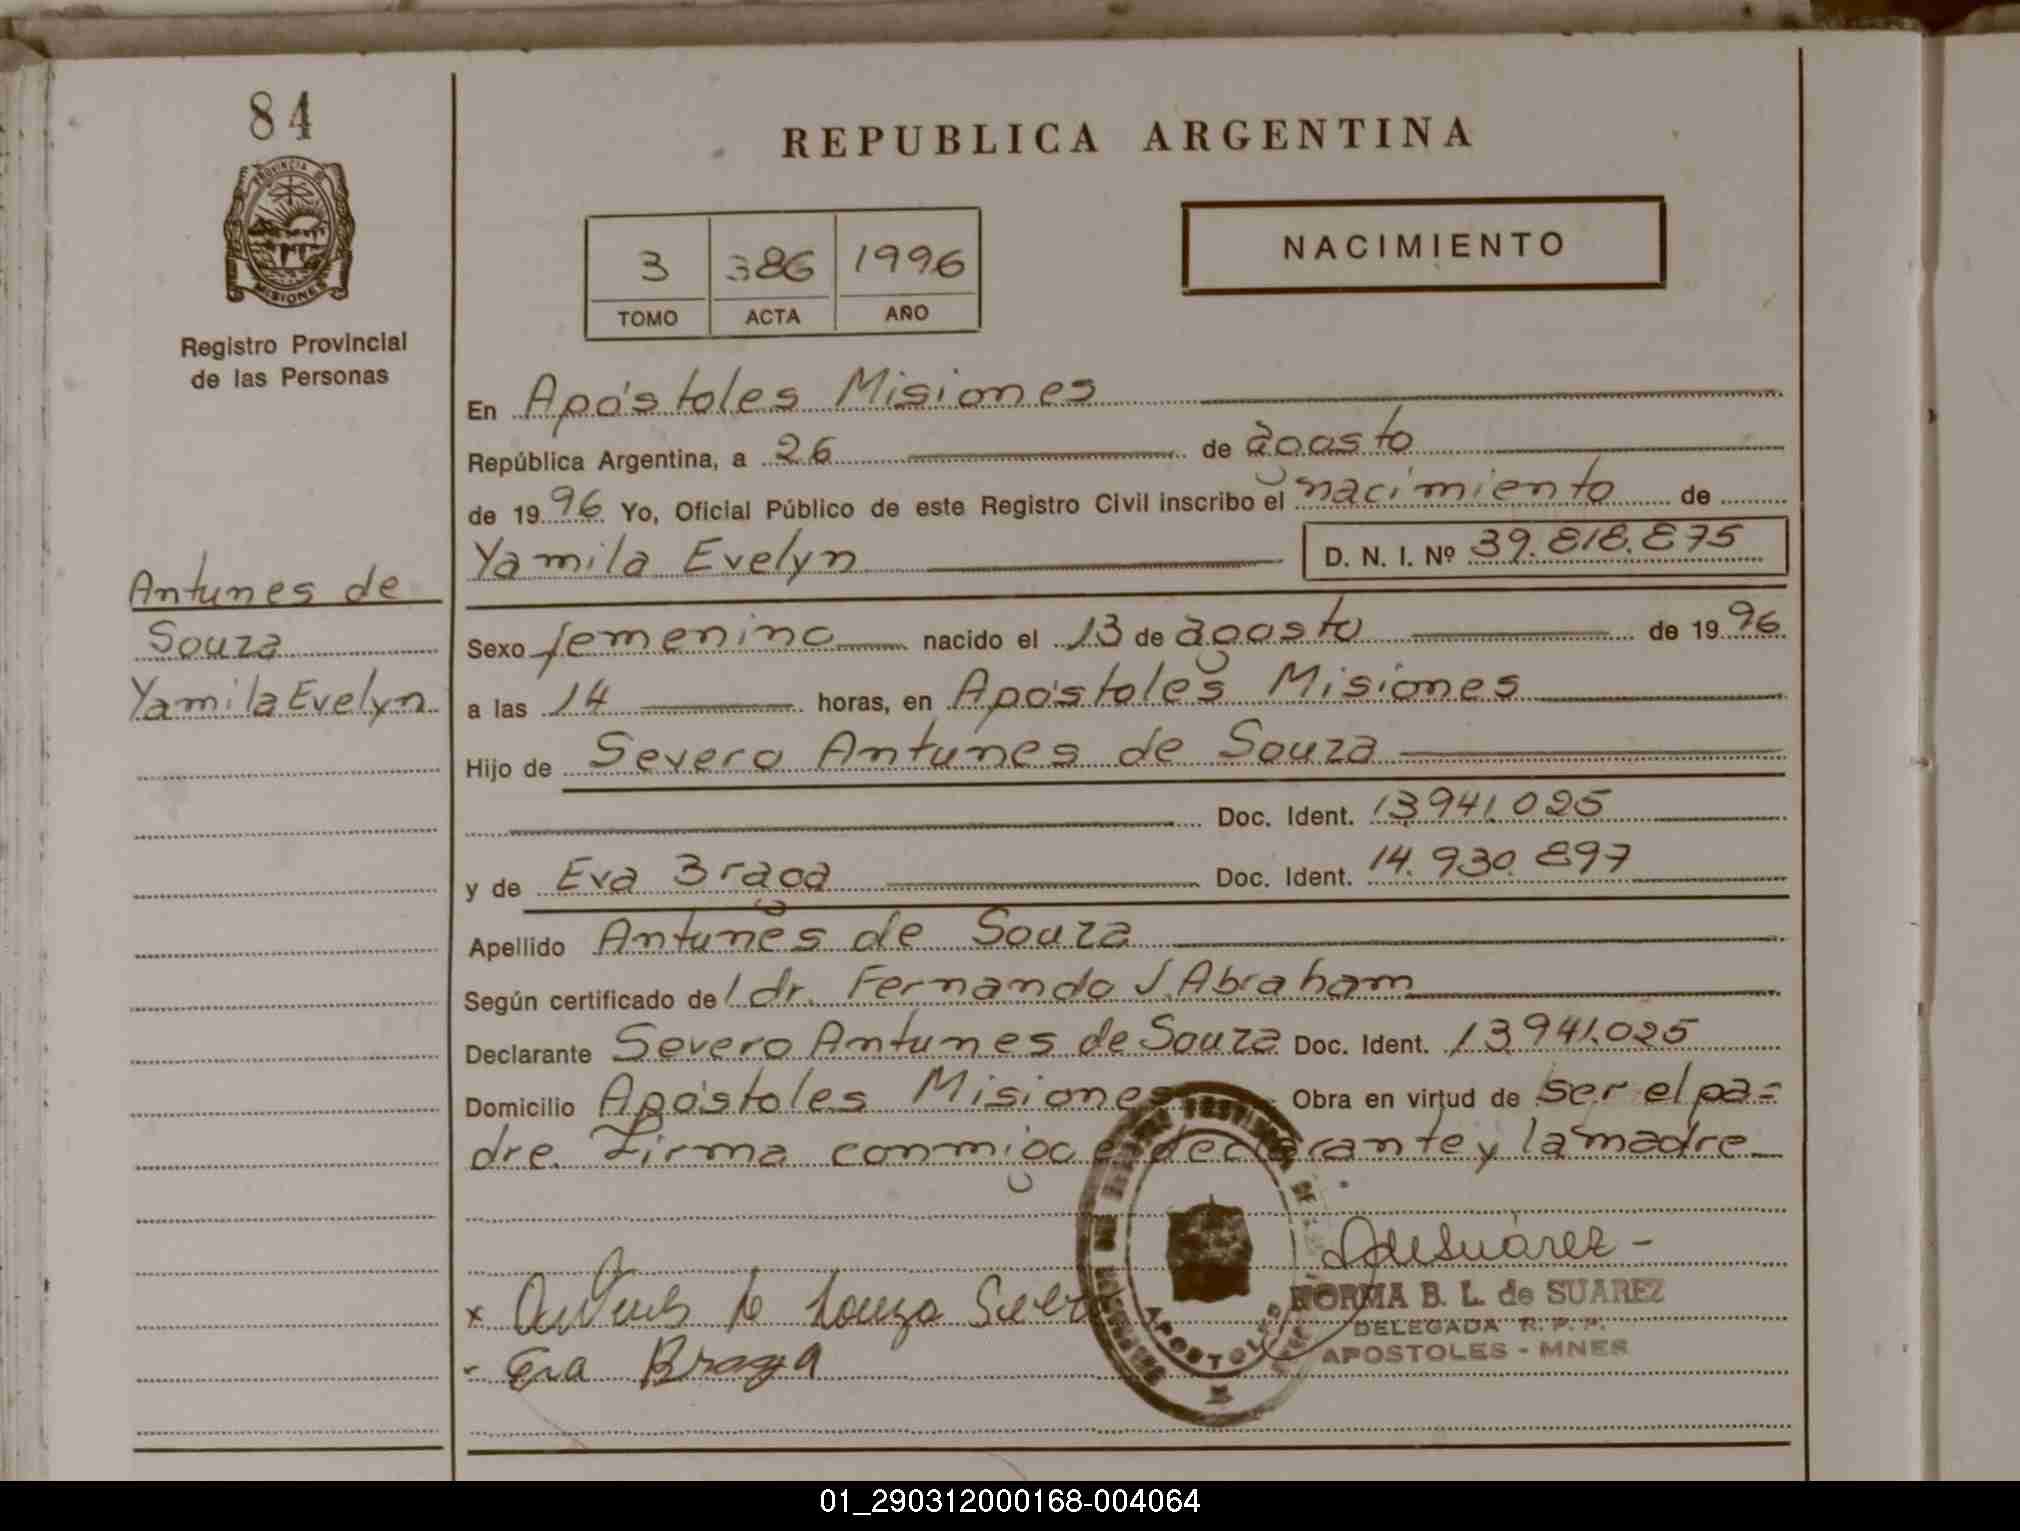 84
PROVINCIA DE
MISIONES
Registro Provincial
de las Personas
Antunes de
Souza
Yamila Evelyn
REPUBLICA ARGENTINA
3 386 1996
TOMO ACTA AÑO
NACIMIENTO
En Apóstoles Misiones
República Argentina, a 26 de agosto
de 1996 Yo, Oficial Público de este Registro Civil inscribo el nacimiento de
Yamila Evelyn D. N. I. Nº 39.818.875
Sexo femenino nacido el 13 de agosto de 1996
a las 14 horas, en Apóstoles Misiones
Hijo de Severo Antunes de Souza
Doc. Ident. 13.941.025
y de Eva Braga Doc. Ident. 14.930.897
Apellido Antunes de Souza
Según certificado del dr. Fernando J. Abraham
Declarante Severo Antunes de Souza Doc. Ident. 13.941.025
Domicilio Apóstoles Misiones Obra en virtud de ser el pa=
dre. Firma conmigo el declarante y la madre
x Antunes de Souza Severo
- Eva Braga
APOSTOLES
NORMA B. L. de SUAREZ
DELEGADA R. P. P.
APOSTOLES - MNES
01_290312000168-004064